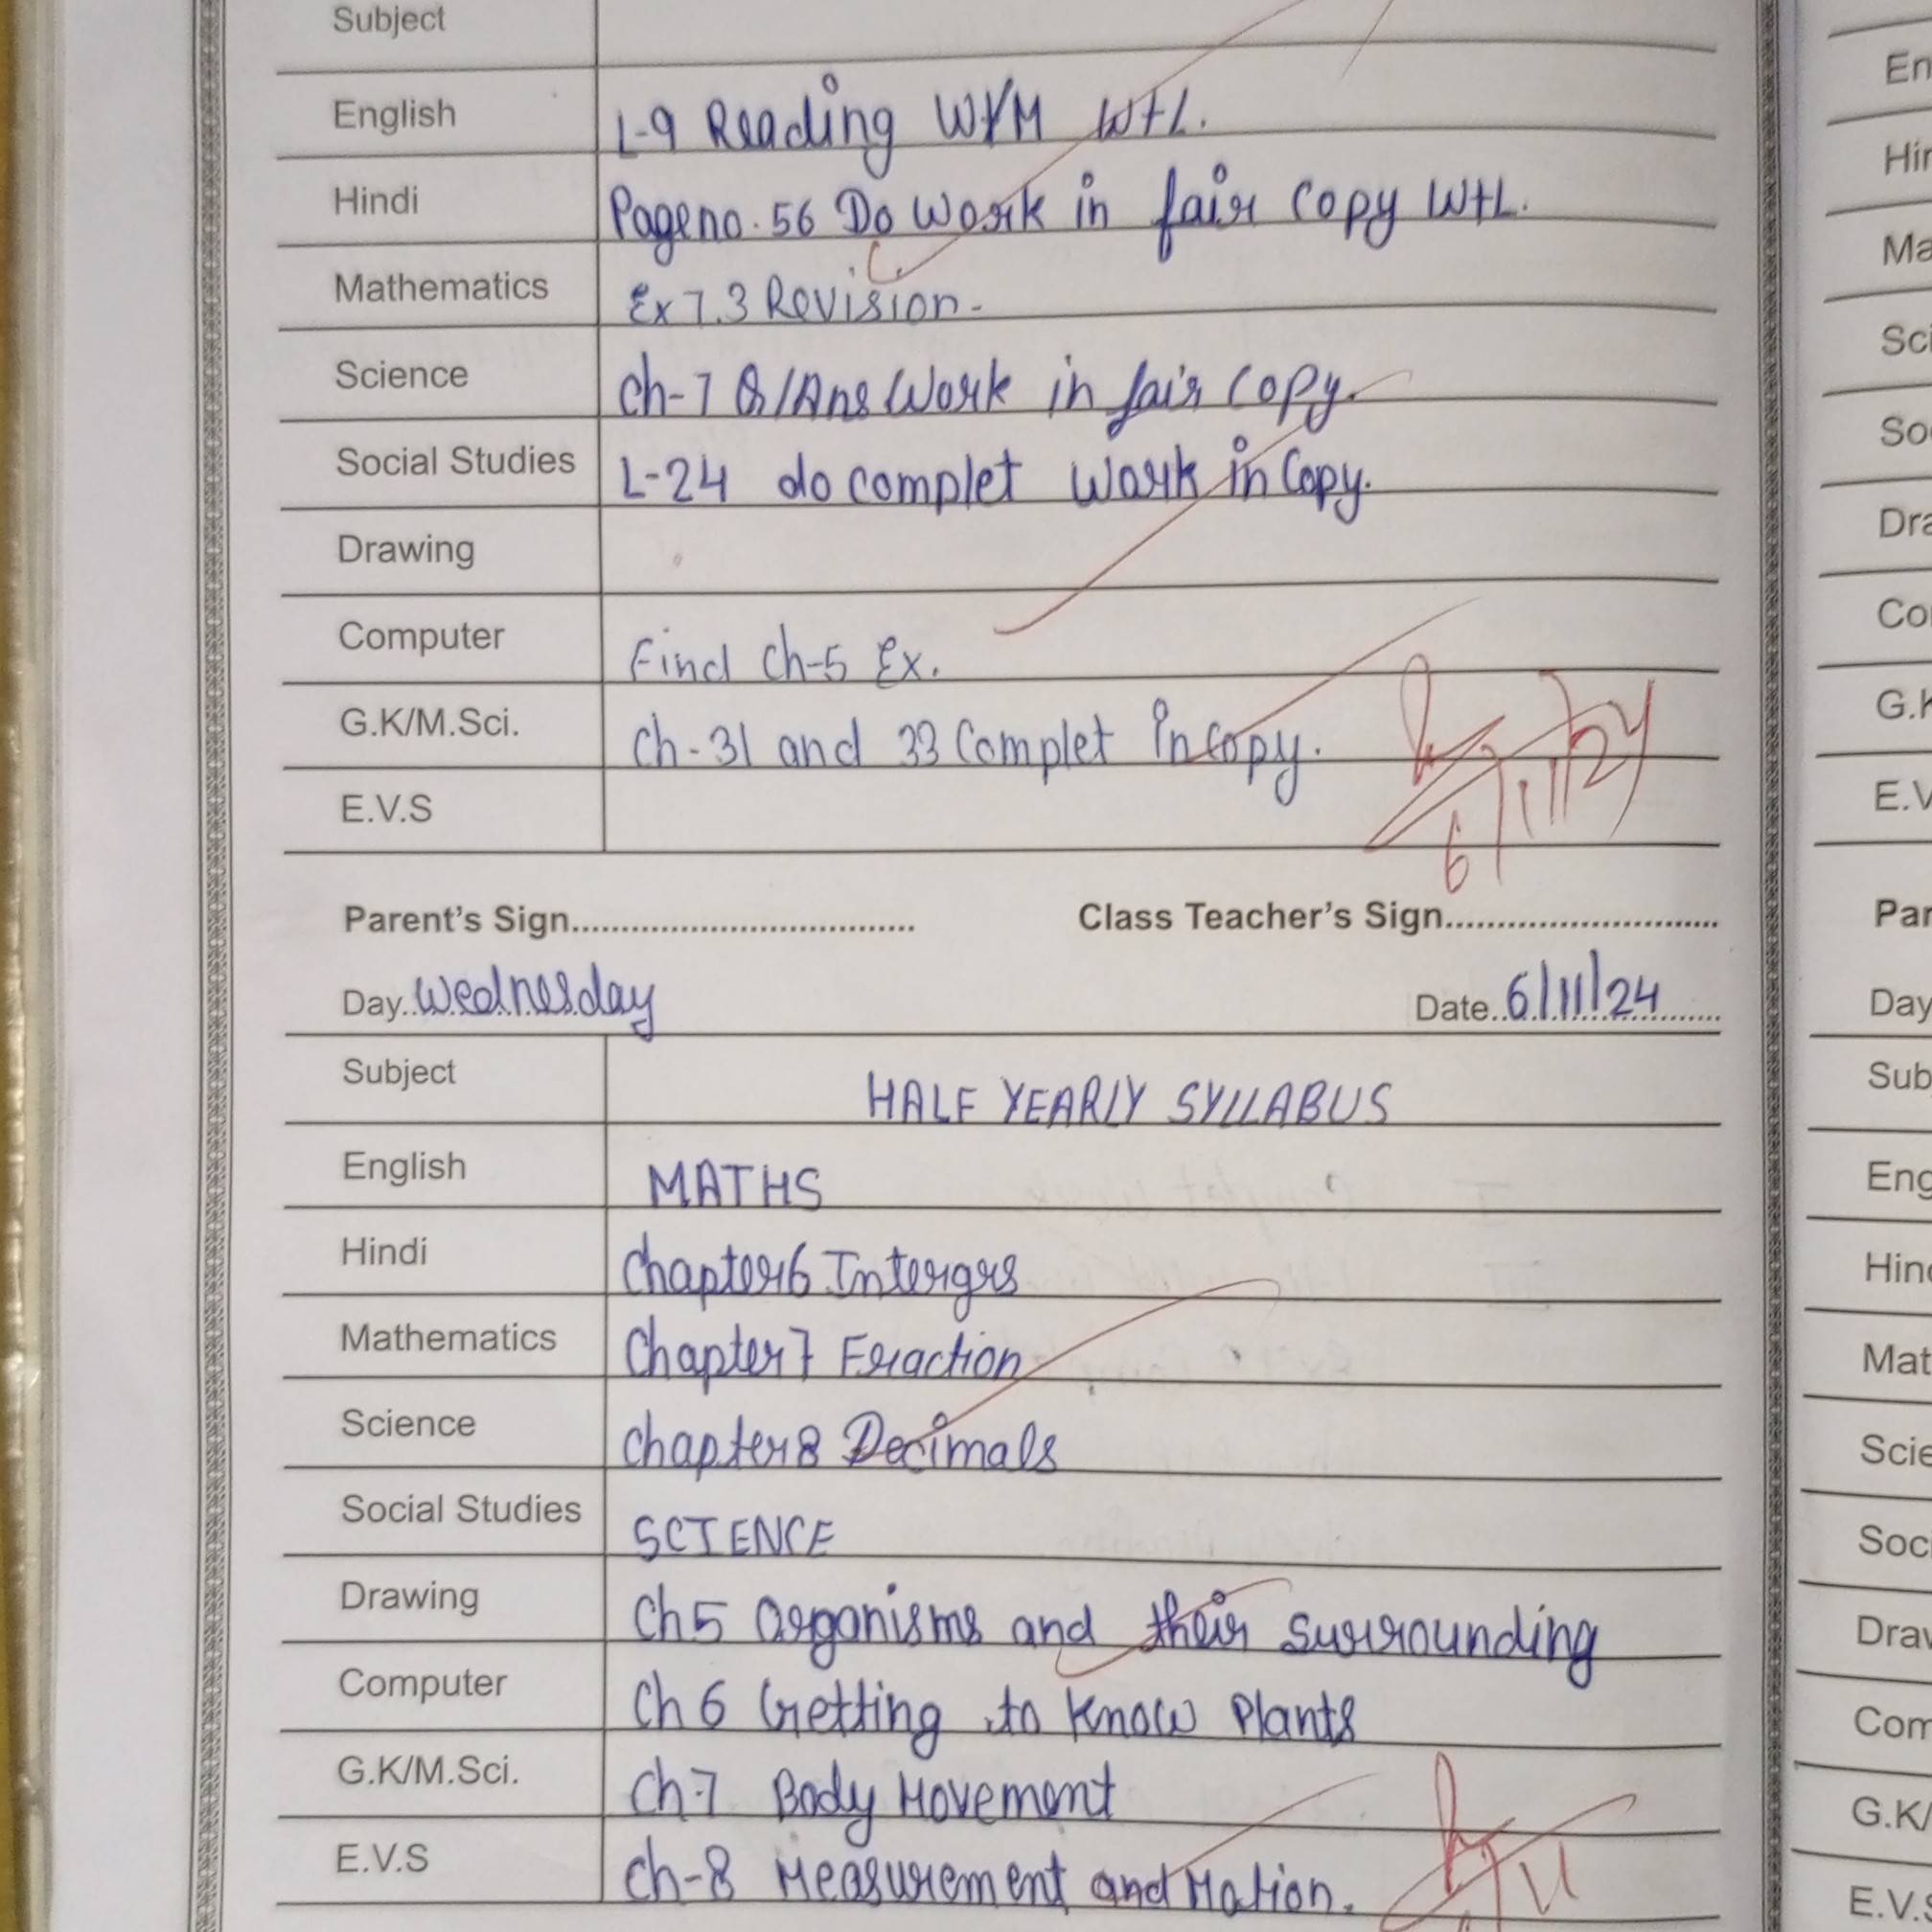 Subject
English L-9 Reading W/M W+L.
Hindi Pageno. 56 Do Work in fair Copy W+L.
Mathematics Ex 7.3 Revision-
Science Ch-7 Q/Ans Work in fair Copy.
Social Studies L-24 do complet Work in Copy.
Drawing
Computer Find Ch-5 Ex.
G.K/M.Sci. Ch-31 and 33 Complet in copy.
E.V.S
6/11/24
Parent's Sign.................................. Class Teacher's Sign...........................
Day..Wednesday Date..6/11/24
Subject HALF YEARLY SYLLABUS
English MATHS
Hindi Chapter6 Intergrs
Mathematics Chapter7 Fraction
Science Chapter8 Decimals
Social Studies SCIENCE
Drawing Ch5 Organisms and their Surrounding
Computer Ch 6 Getting to Know Plants
G.K/M.Sci. Ch-7 Body Movement
E.V.S Ch-8 Measurement and Motion.
En
Hin
Ma
Sci
So
Dra
Co
G.K
E.V
Par
Day
Sub
Eng
Hin
Mat
Scie
Soci
Draw
Com
G.K/
E.V.S